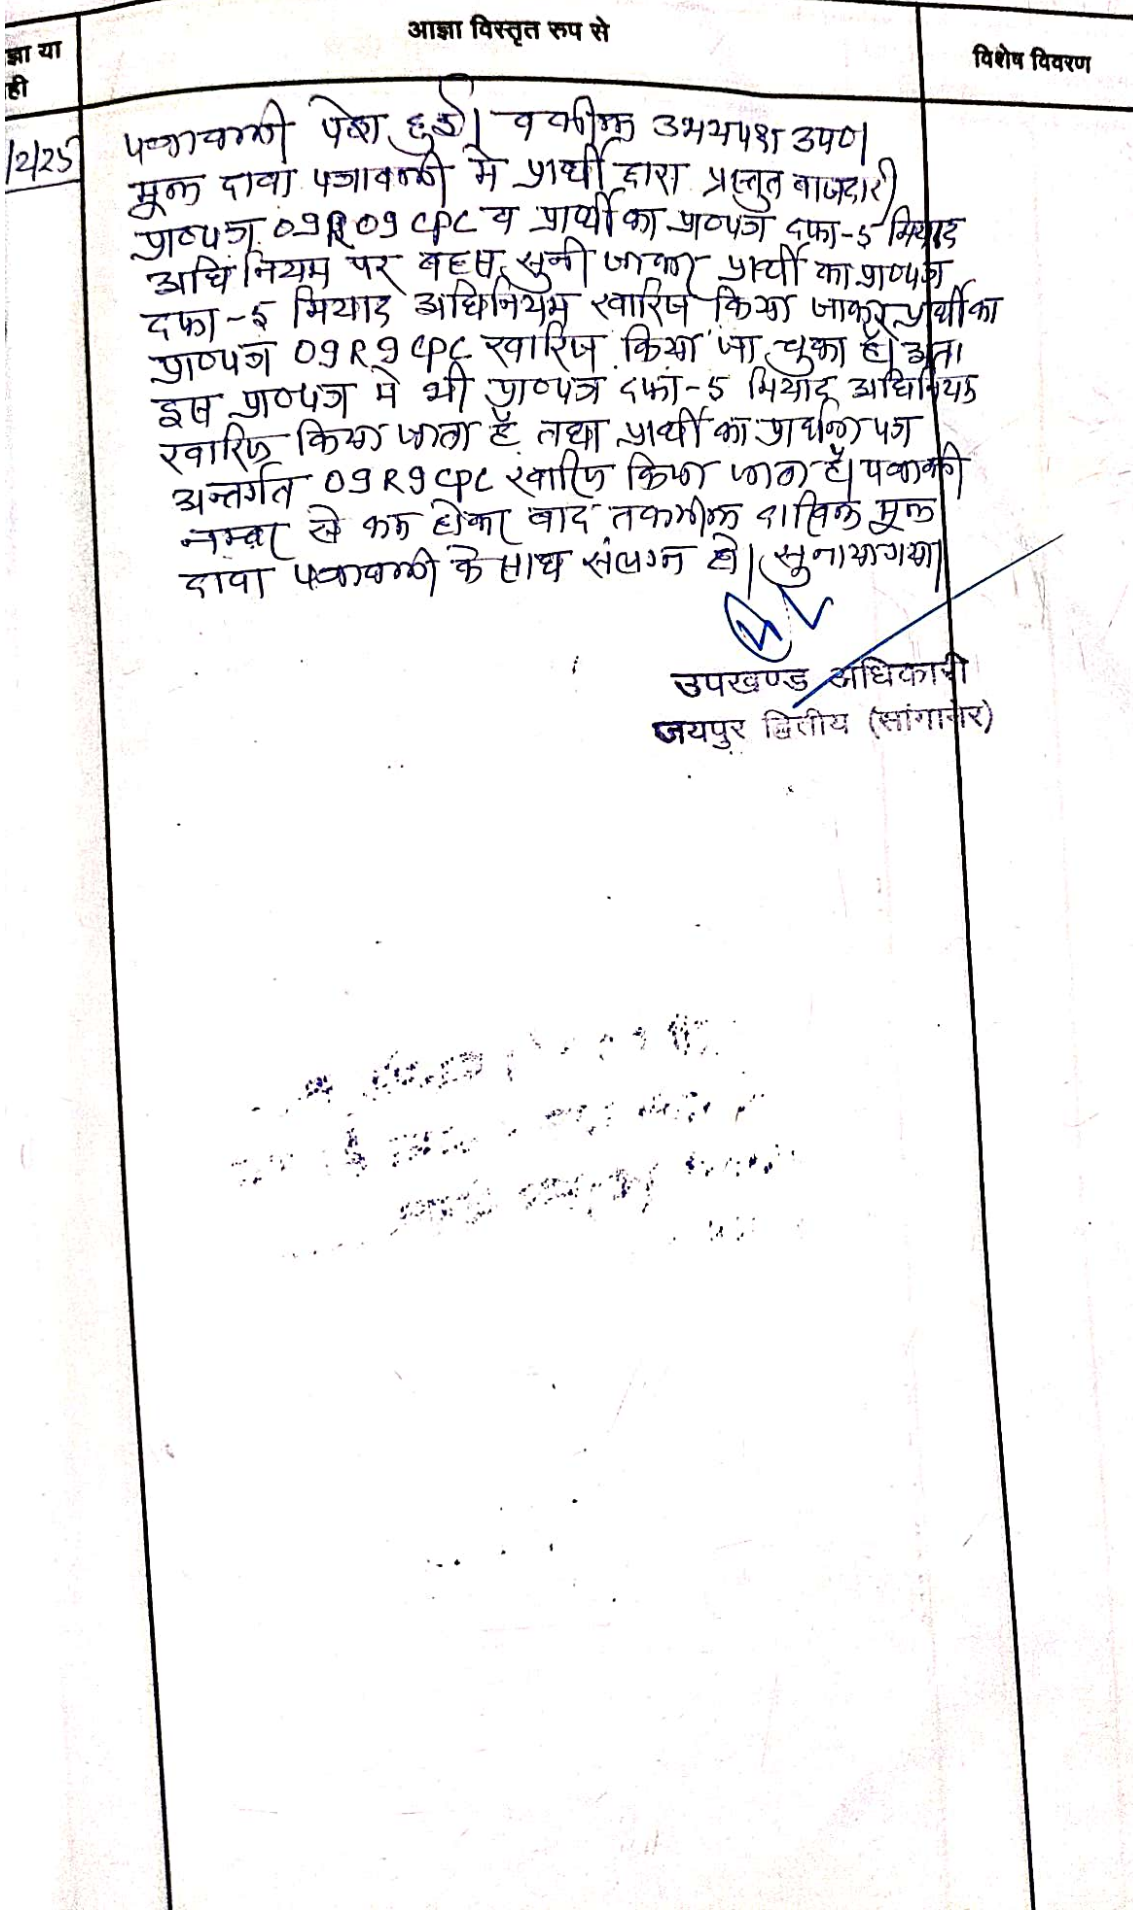 आज्ञा विस्तृत रुप से
ज्ञा या
ही
विशेष विवरण
12/25
पत्रावली पेश हुई। वकील उभयपक्ष उप०।
मूल दावा पत्रावली मे प्रार्थी द्वारा प्रस्तुत बाजदारी
प्रा०पत्र 09R09 CPC व प्रार्थी का प्रा०पत्र दफा-5 मियाद
अधिनियम पर बहस सुनी जाकर प्रार्थी का प्रा०पत्र
दफा-5 मियाद अधिनियम खारिज किया जाकर प्रार्थी का
प्रा०पत्र 09R9 CPC खारिज किया जा चुका है। अतः
इस प्रा०पत्र मे भी प्रा०पत्र दफा-5 मियाद अधिनियम
खारिज किया जाता है तथा प्रार्थी का प्रार्थना पत्र
अन्तर्गत 09R9 CPC खारिज किया जाता है। पत्रावली
नम्बर से कम होकर बाद तकमील दाखिल मूल
दावा पत्रावली के साथ संलग्न हो। सुनाया गया।
उपखण्ड अधिकारी
जयपुर द्वितीय (सांगानेर)